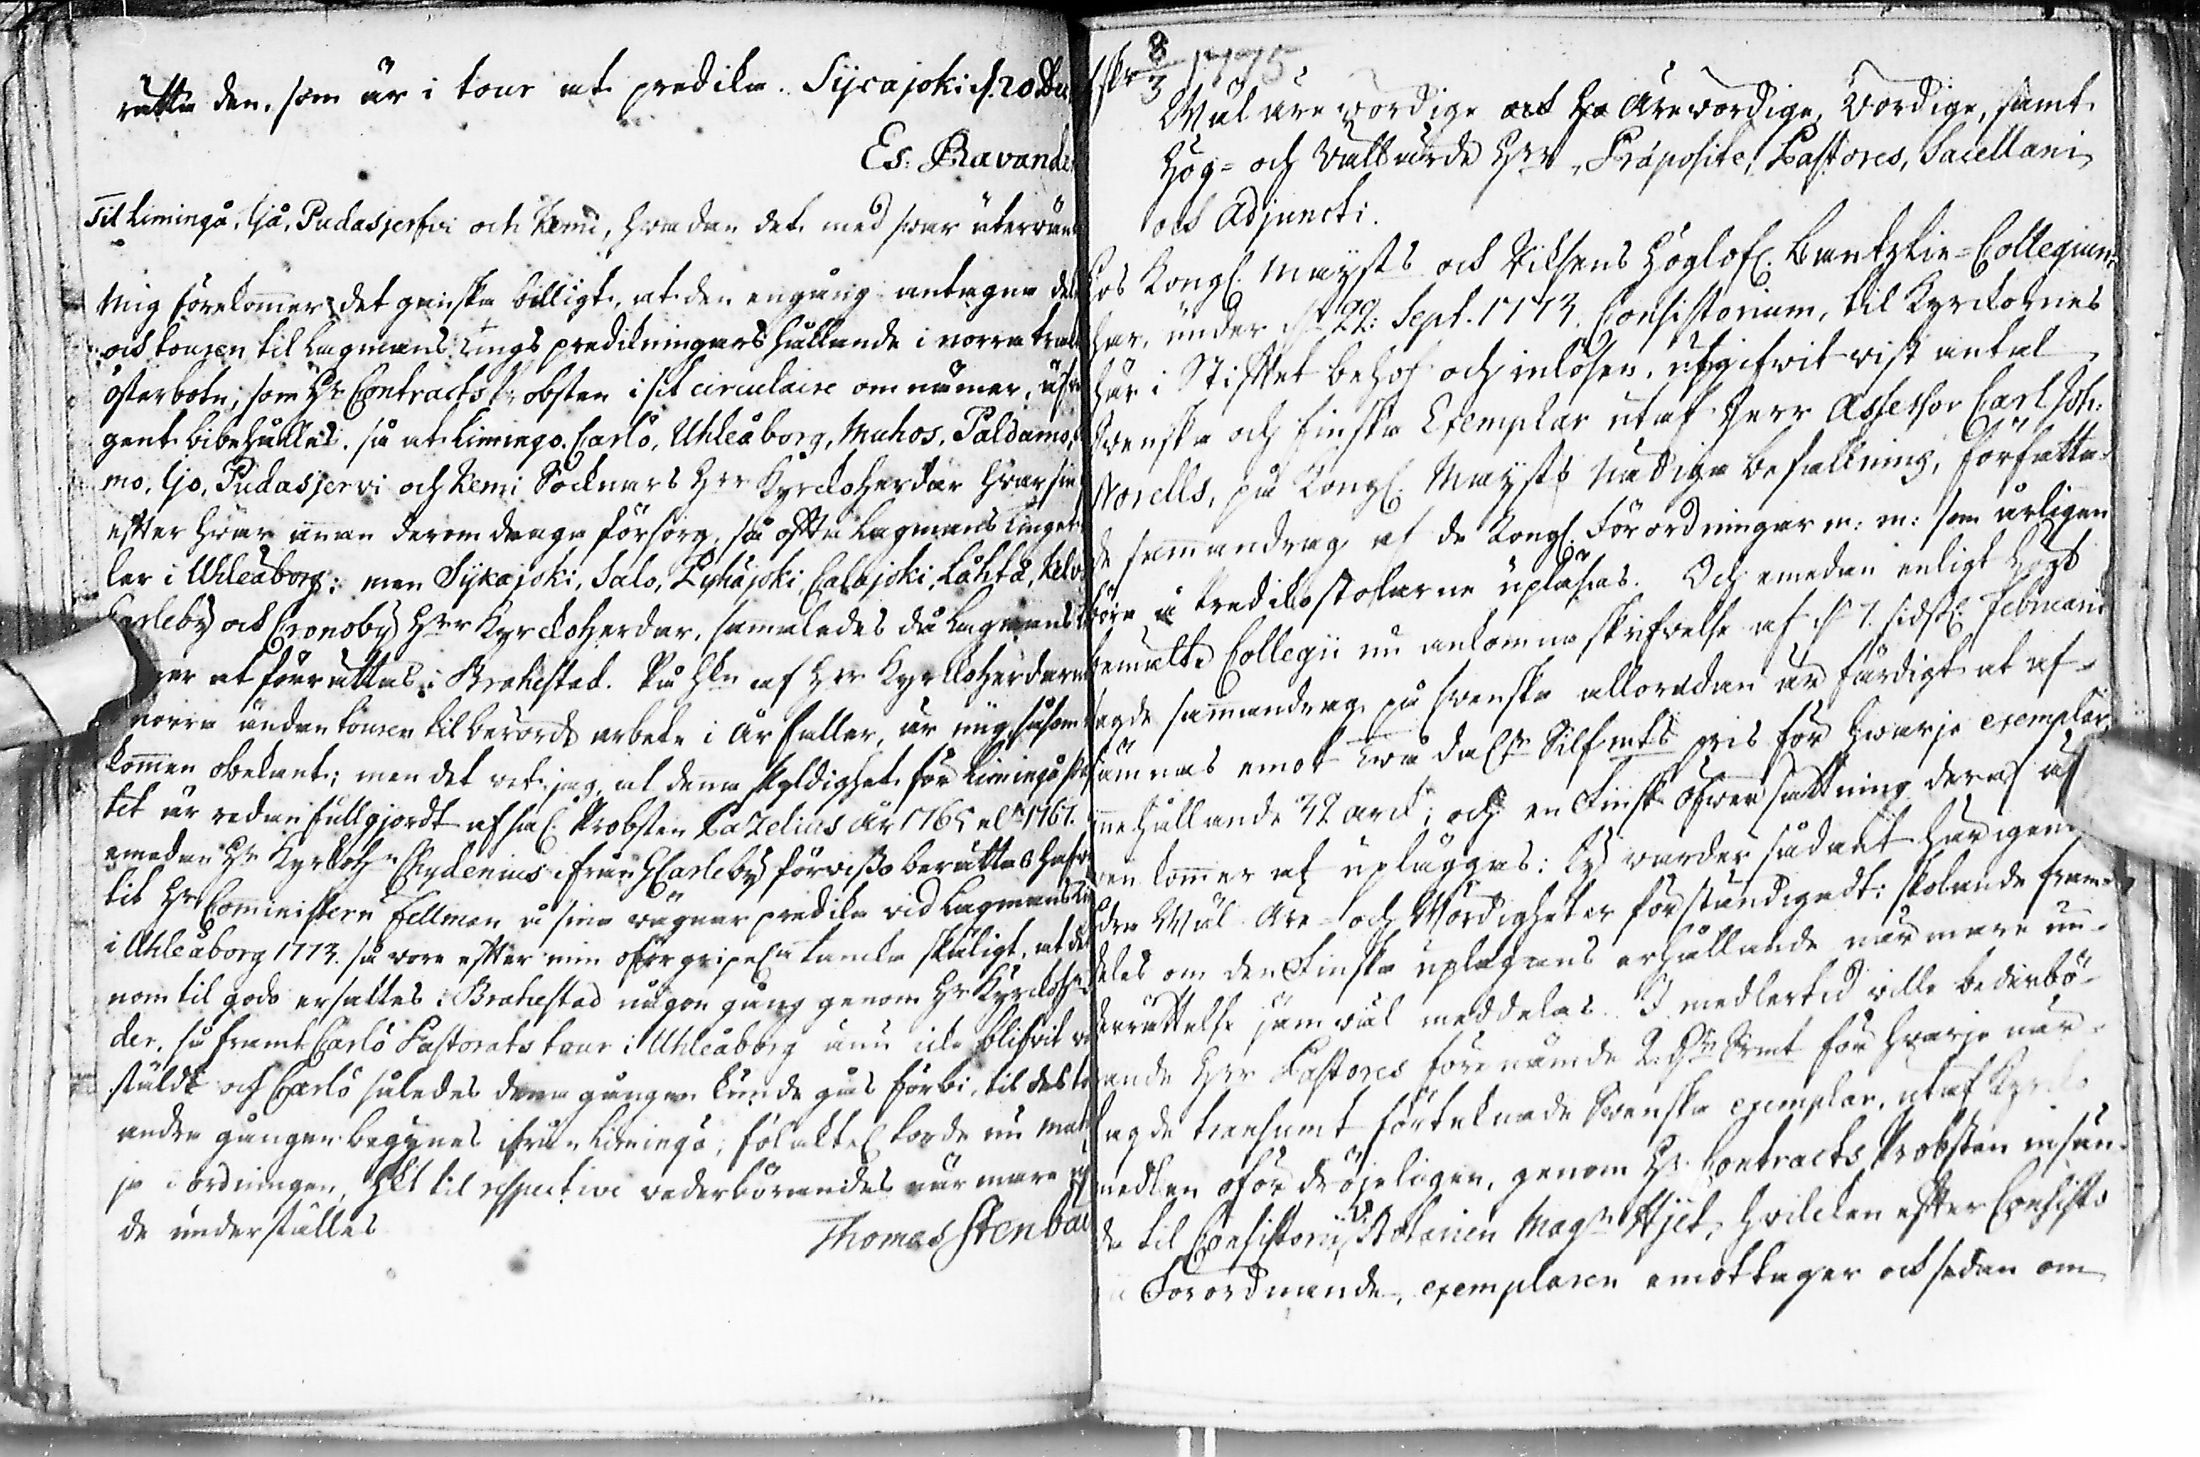 rätta den, som är i tour at predika. Sijcajoki d. 20
Es: Ravand
Til Limingå, Ijå, Pudasjerfvi och Kemi, hvadan det med svar återvän
Mig förekommer det ganska billigt, at den engång antagna
och touren til Lagmans Tings predikningars hållande i norra
österbotn, som Hr Contracts Probsten i sit circulaire omnämer,
gent bibehålles. så at Limingo. Carlö, Uhleåborg, Muhos, Paldamo,
mo, Ijo, Pudasjervi och Kemi Socknars Hrr Kyrckoherdar hvar sin
efter hvar annan derom draga försorg, så ofta Lagmans Tinget
ler i Uhleåborg: men Sijkajoki, Salo, Pyhäjoki Calajoki, Låhtå, Kelv
Carleby och Cronoby Hrr Kyrckoherdar, sammaledes då Lagmans
at förrättas i Brahestad. På af Hrr Kyrckoherdarne
norra ändan touren til berörde arbete i år faller, är mig såsom
kommen obekant; men det vet jag, at denna skyldighet för Limingå
tet är redan fullgjordt af Sal. Probsten Lazelius år 1765 el. 1767.
emedan Hr Kyrckoh. Chydenius ifrån G Carleby förviss berättas hafva
lit Hr Comministern Fellman å sina vägnar predika vid Lagmans
i Uhleåborg 1773. så vore efter min oförgripel. tancka skäligt, at
nom til godo ersattes i Brahestad någon gång genom Hr Kyrckoh
der, så framt Carlö Pastorats tour i Uhleåborg ännu icke blifvit
stäldt och Carlö således denna gången kunde gås förbi, til dess
andra gången begynes ifrån Limingo, följaktel. torde nu
je i ordningen, til respective vederbörandes närmare
de underställes
Thomas Stenbäck
8/3 1775
Wäl ärevördige och Ärevördige, Vördige, samt
Hög- och Vällärde Hrr, Præposite, Pastores, Sacellani
och Adjuncti.
Hos Kongl. Mayts och Riksens Höglofl. Cantzlie-Collegium
har, under d. 22: Sept. 1773. Consistorium, til Kyrckornes
här i Stiftet behof och inlösen, utgifvit vist antal
Svenska och finska Exemplar utaf Herr Assessor Carl Joh:
Norells, på Kongl. Mayts nådiga befallning, författa
de sammandrag af de Kongl. Förordningar m: m: som årligen
böra å Predikostolarne upläsas. Och emedan enligt högt
bemälte Collegii nu ankomna skrifvelse af d. 7. sidstl. Februarii
sagde sammandrag på Svenska allaredan är färdigt at af-
hämnas emot två dal. Silfmts pris för hvarje exemplar
innehållande 32 arck; och en Finsk öfversättning deraf
ven kommer at upläggas: Ty varder sådant härigenom
Edra Wäl Äre- och Wördigheter förständigadt: skolande fram-
deles om den Finska uplagans erhållande närmare un-
derrättelse jämväl meddelas. I medlertid ville vederbö-
rande Hrr Pastores förenämde 2. Dr Smt för hvarje när-
lagde transumt förteknade Svenska exemplar, utaf Kyrcko
medlen ofördröjeligen, genom Hr Contracts Probsten insän-
da til Consistorii Notarien Mag. Hjelt, hvilcken efter Consisto
Förordnande, exemplaren emottager och sedan om